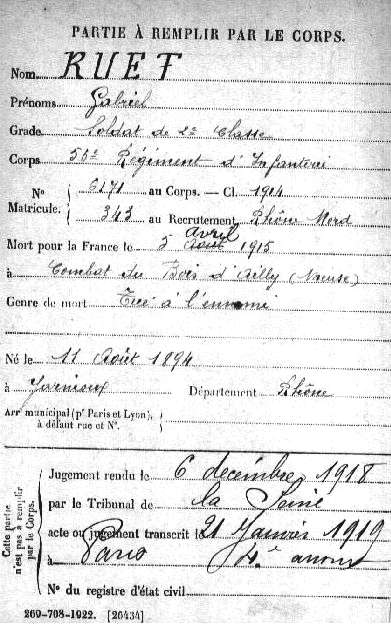 PARTIE À REMPLIR PAR LE CORPS.
Nom RUET
Prénoms Gabriel
Grade Soldat de 2e Classe
Corps 56e Régiment d'Infanterie
N° Matricule. 6171 au Corps. — Cl. 1914
343 au Recrutement Rhône Nord
Mort pour la France le 5 Avril Août 1915
à Combat du Bois d'Ailly (Meuse)
Genre de mort Tué à l'ennemi
Né le 11 Août 1894
à Jarnioux Département Rhône
Arrt municipal (pr Paris et Lyon),
à défaut rue et N°.
Cette partie n'est pas à remplir par le Corps.
Jugement rendu le 6 decembre 1918
par le Tribunal de la Seine
acte ou jugement transcrit le 21 Janvier 1919
à Paris 4e
N° du registre d'état civil
269-708-1922. [26434]